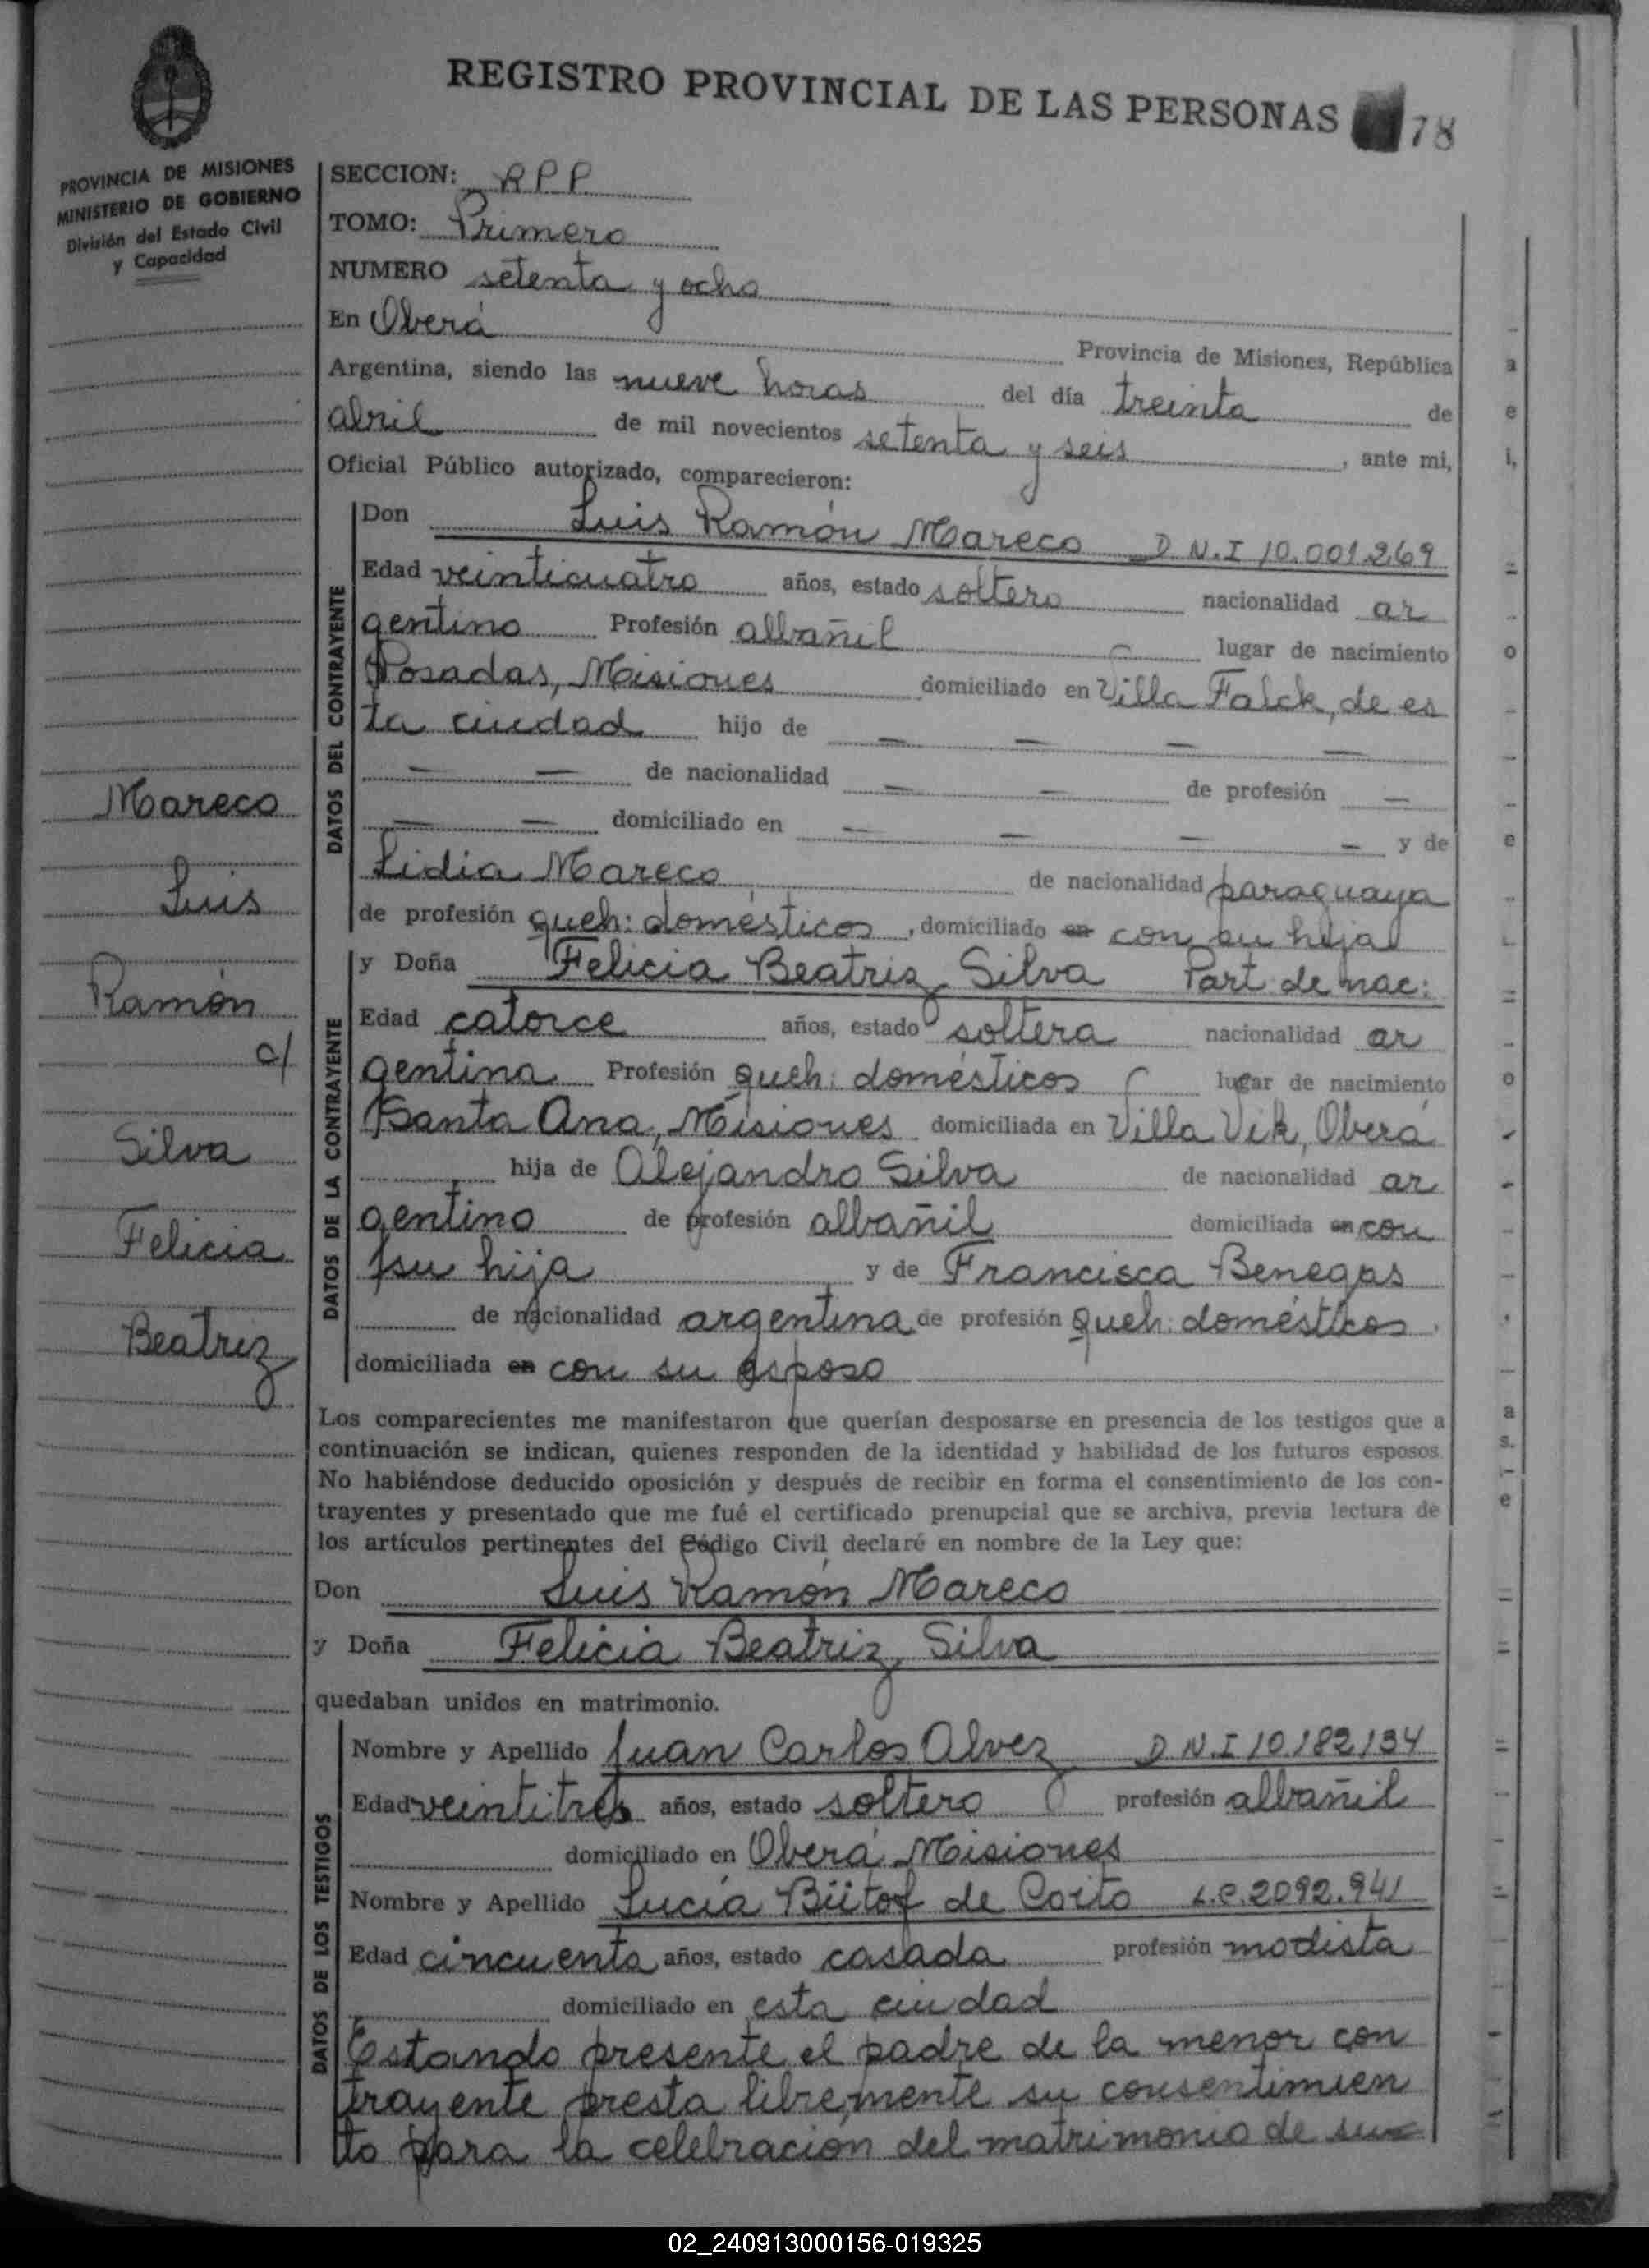 REGISTRO PROVINCIAL DE LAS PERSONAS 78
PROVINCIA DE MISIONES
MINISTERIO DE GOBIERNO
División del Estado Civil
y Capacidad
SECCION: RPP
TOMO: Primero
NUMERO setenta y ocho
En Oberá Provincia de Misiones, República
Argentina, siendo las nueve horas del día treinta de
abril de mil novecientos setenta y seis, ante mi,
Oficial Público autorizado, comparecieron:
DATOS DEL CONTRAYENTE
Don Luis Ramón Mareco D.N.I 10.001.269
Edad veinticuatro años, estado soltero nacionalidad ar
gentino Profesión albañil lugar de nacimiento
Posadas, Misiones domiciliado en Villa Falck, de es
ta ciudad hijo de — — — —
— — de nacionalidad — — de profesión —
— — domiciliado en — — — — y de
Lidia Mareco de nacionalidad paraguaya
de profesión queh: domésticos, domiciliado en con su hija
DATOS DE LA CONTRAYENTE
y Doña Felicia Beatriz Silva Part. de nac:
Edad catorce años, estado soltera nacionalidad ar
gentina Profesión queh: domésticos lugar de nacimiento
Santa Ana, Misiones domiciliada en Villa Vik, Oberá
hija de Alejandro Silva de nacionalidad ar
gentino de profesión albañil domiciliada en con
su hija y de Francisca Benegas
de nacionalidad argentina de profesión queh: domésticos,
domiciliada en con su esposo
Mareco
Luis
Ramón
c/
Silva
Felicia
Beatriz
Los comparecientes me manifestaron que querían desposarse en presencia de los testigos que a
continuación se indican, quienes responden de la identidad y habilidad de los futuros esposos.
No habiéndose deducido oposición y después de recibir en forma el consentimiento de los con-
trayentes y presentado que me fué el certificado prenupcial que se archiva, previa lectura de
los artículos pertinentes del Código Civil declaré en nombre de la Ley que:
Don Luis Ramón Mareco
y Doña Felicia Beatriz Silva
quedaban unidos en matrimonio.
DATOS DE LOS TESTIGOS
Nombre y Apellido Juan Carlos Alvez D.N.I 10.182.134
Edad veintitrés años, estado soltero profesión albañil
domiciliado en Oberá, Misiones
Nombre y Apellido Lucía Büttof de Corto L.C. 2092.941
Edad cincuenta años, estado casada profesión modista
domiciliado en esta ciudad
Estando presente el padre de la menor con
trayente presta libremente su consentimien
to para la celebración del matrimonio de su
02_240913000156-019325